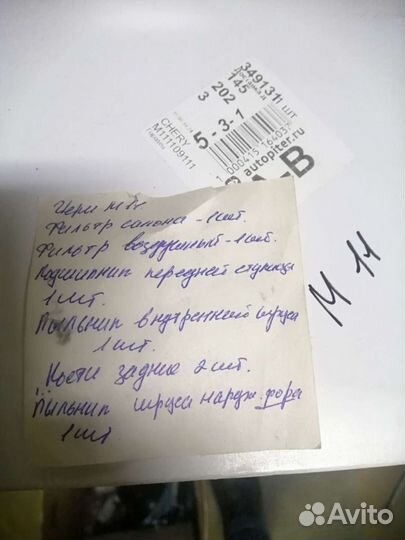 349131
1 шт
Доставка д
145
202
3
CHERY
M111109111
5-3-1
1 000415 164037
autopiter.ru
-B
Чери м11.
Фильтр салона - 1шт.
Фильтр воздушный - 1шт.
Подшипник передней ступицы
1шт.
Пыльник внутренней шруса
1шт.
Кости задние 2шт.
Пыльник шруса наруж. фора
1шт
М 11
Avito